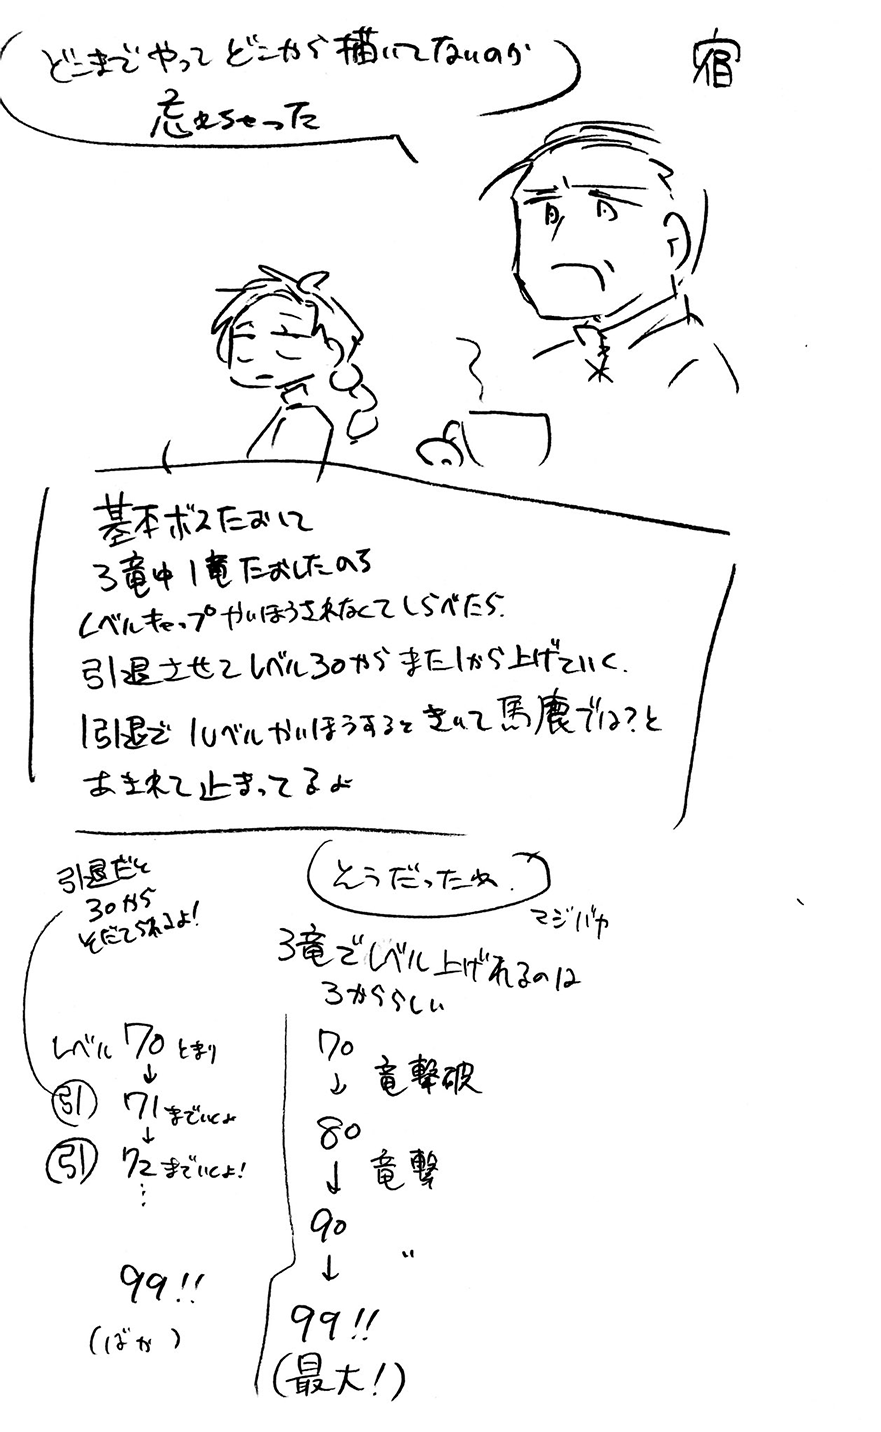 宿
どこまでやってどこから描いてないのか
忘れちゃった
基本ボスたおして
3竜中1竜たおしたのち
レベルキャップかいほうされなくてしらべたら、
引退させてレベル30からまた1から上げていく、
1引退で1レベルかいほうするときいて馬鹿では?と
あきれて止まってるよ
そうだったね、
マジバカ
引退だと
30から
そだてられるよ!
レベル70とまり
↓
引 71までいくよ
↓
引 72までいくよ!
⋮
99!!
(ばか)
3竜でレベル上げれるのは
3かららしい
70
↓ 竜撃破
80
↓ 竜撃
90
↓ 〃
99!!
(最大!)